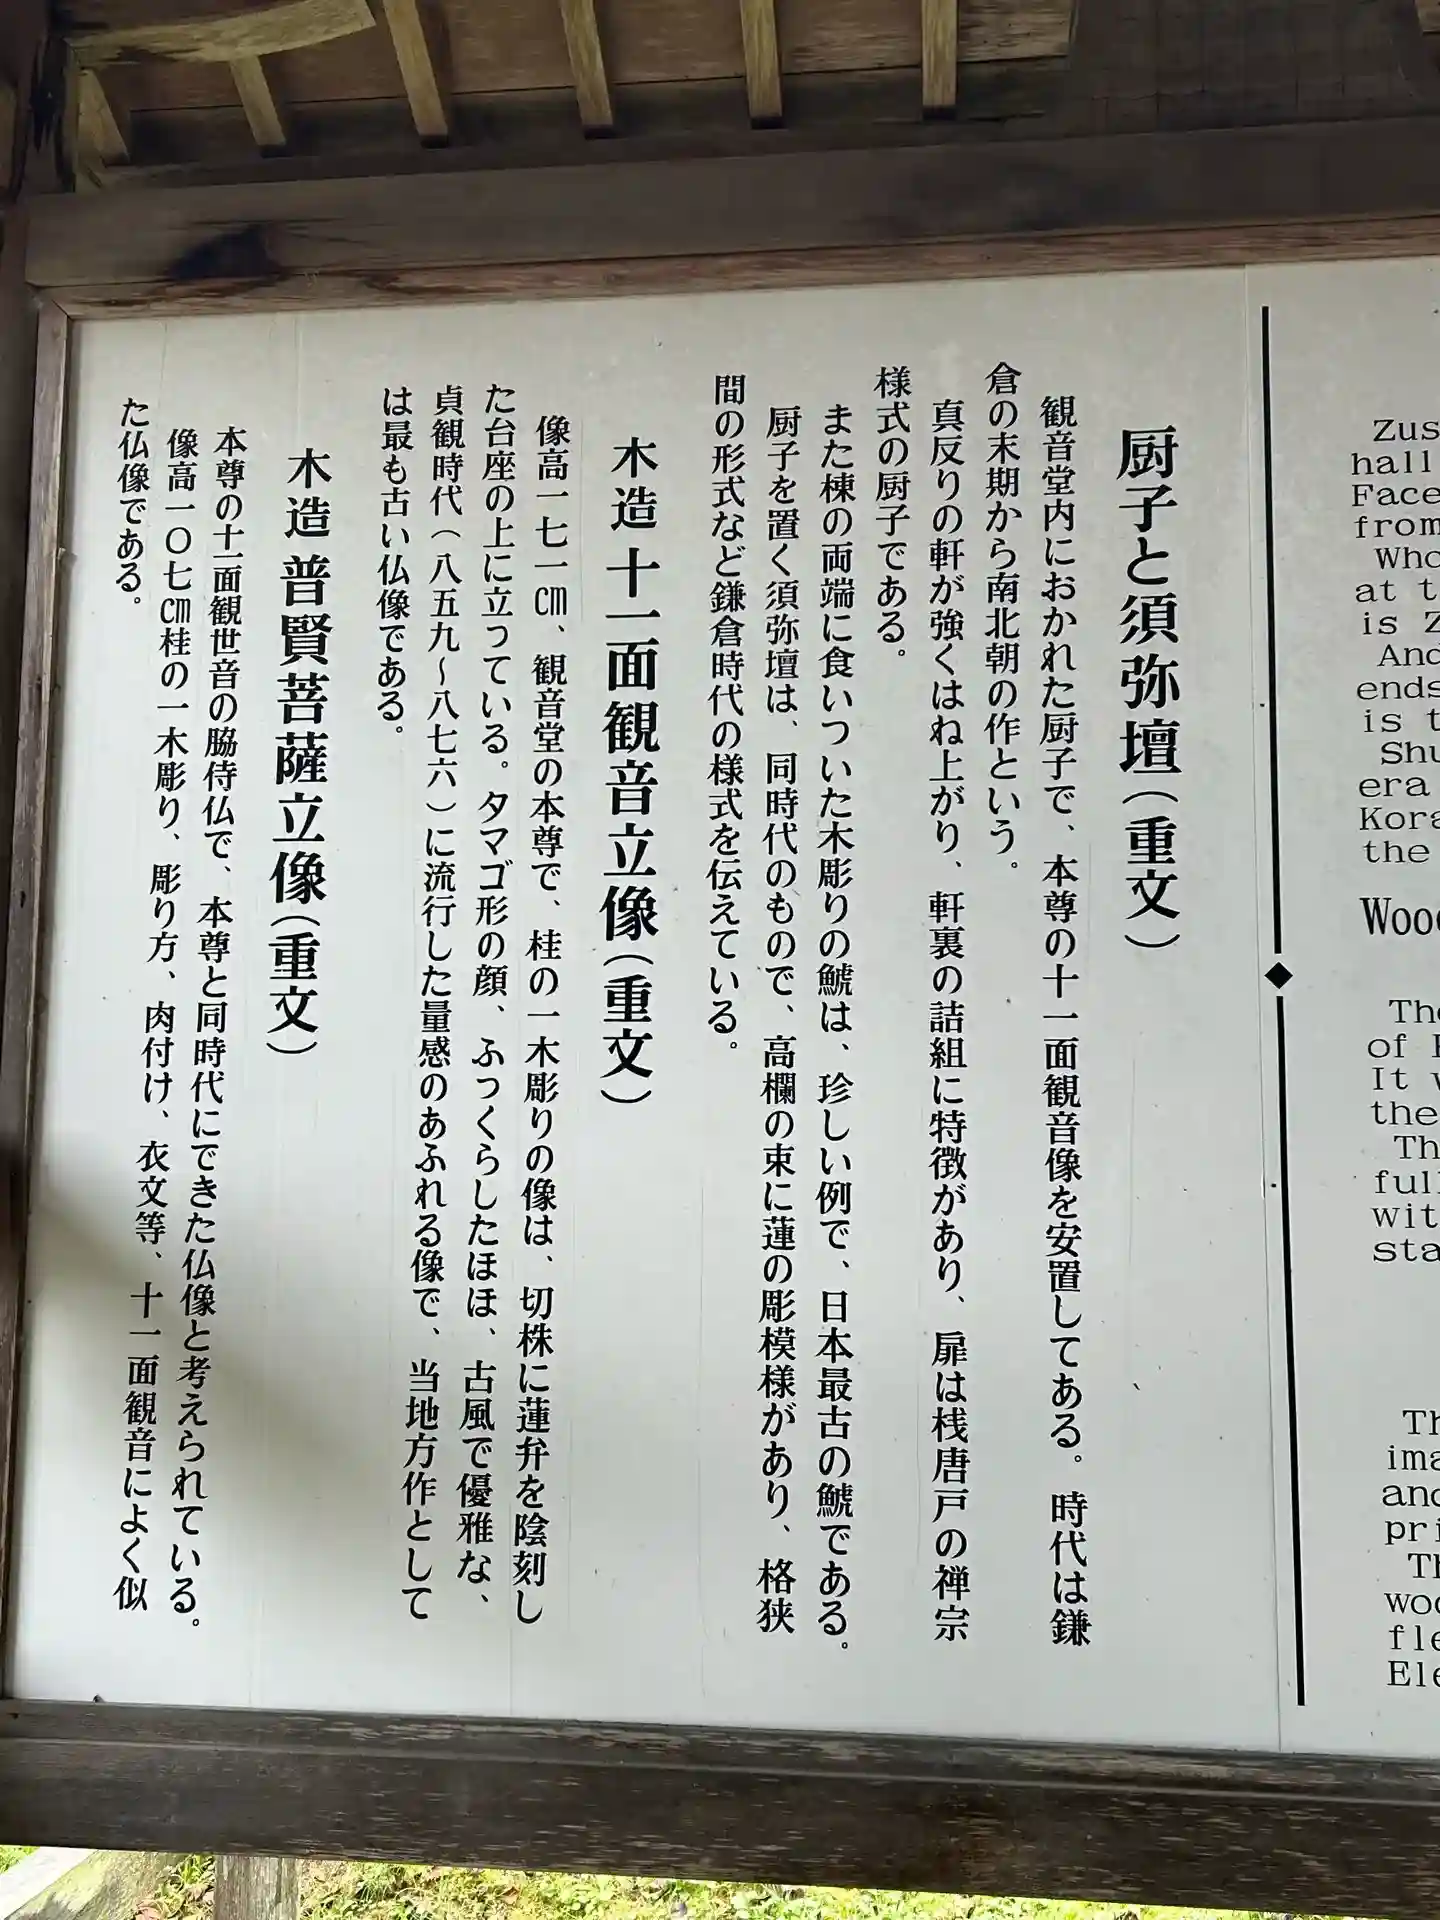 厨子と須弥壇(重文)
観音堂内におかれた厨子で、本尊の十一面観音像を安置してある。時代は鎌
倉の末期から南北朝の作という。
真反りの軒が強くはね上がり、軒裏の詰組に特徴があり、扉は桟唐戸の禅宗
様式の厨子である。
また棟の両端に食いついた木彫りの鯱は、珍しい例で、日本最古の鯱である。
厨子を置く須弥壇は、同時代のもので、高欄の束に蓮の彫模様があり、格狭
間の形式など鎌倉時代の様式を伝えている。
木造 十一面観音立像(重文)
像高一七一㎝、観音堂の本尊で、桂の一木彫りの像は、切株に蓮弁を陰刻し
た台座の上に立っている。タマゴ形の顔、ふっくらしたほほ、古風で優雅な、
貞観時代(八五九〜八七六)に流行した量感のあふれる像で、当地方作として
は最も古い仏像である。
木造 普賢菩薩立像(重文)
本尊の十一面観世音の脇侍仏で、本尊と同時代にできた仏像と考えられている。
像高一〇七㎝桂の一木彫り、彫り方、肉付け、衣文等、十一面観音によく似
た仏像である。
Zus
hall
Face
from
Who
at t
is Z
And
ends
is t
Shu
era
Kora
the
Wood
The
of
It
the
Th
full
wit
sta
Th
ima
and
pri
Th
woo
fle
Ele